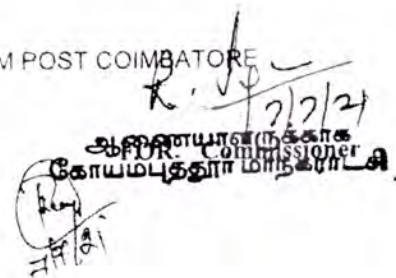 M POST COIMBATORE
7/7/21
ஆணையாளருக்காக
FOR. Commissioner
கோயம்புத்தூர் மாநகராட்சி